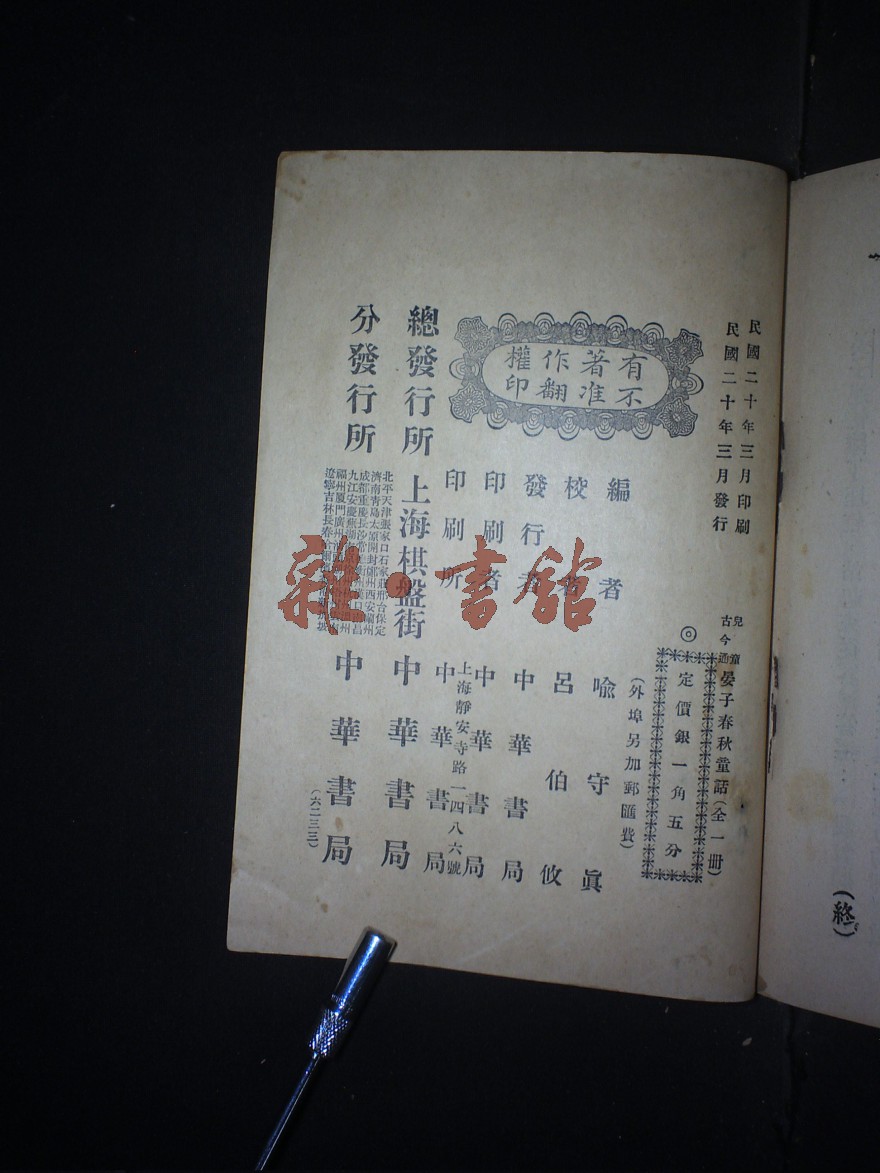 民國二十年三月印刷
民國二十年三月發行
兒童
古今通
晏子春秋童話(全一册)
◎
定價銀一角五分
(外埠另加郵匯費)
有著作權
不准翻印
編者 喩守眞
校者 呂伯攸
發行者 中華書局
印刷者 中華書局
上海靜安寺路一四八六號
印刷所 中華書局
總發行所 上海棋盤街 中華書局
分發行所
北平天津張家口石家莊邢台保定
濟南青島太原開封鄭州西安蘭州
成都重慶長沙
九江安慶蕪湖
福州廈門廣州
遼寧吉林長春
中華書局
(六二三三)
(終)
雜·書館